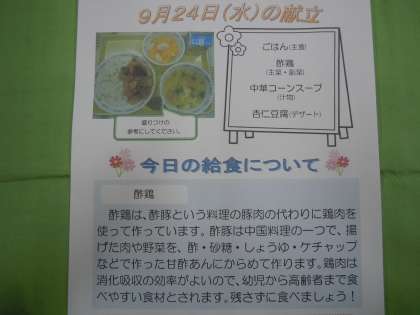 9月24日(水)の献立
ごはん(主食)
酢鶏
(主菜・副菜)
中華コーンスープ
(汁物)
杏仁豆腐(デザート)
盛りつけの
参考にしてください。
今日の給食について
酢鶏
酢鶏は、酢豚という料理の豚肉の代わりに鶏肉を
使って作っています。酢豚は中国料理の一つで、揚
げた肉や野菜を、酢・砂糖・しょうゆ・ケチャップ
などで作った甘酢あんにからめて作ります。鶏肉は
消化吸収の効率がよいので、幼児から高齢者まで食
べやすい食材とされます。残さずに食べましょう!